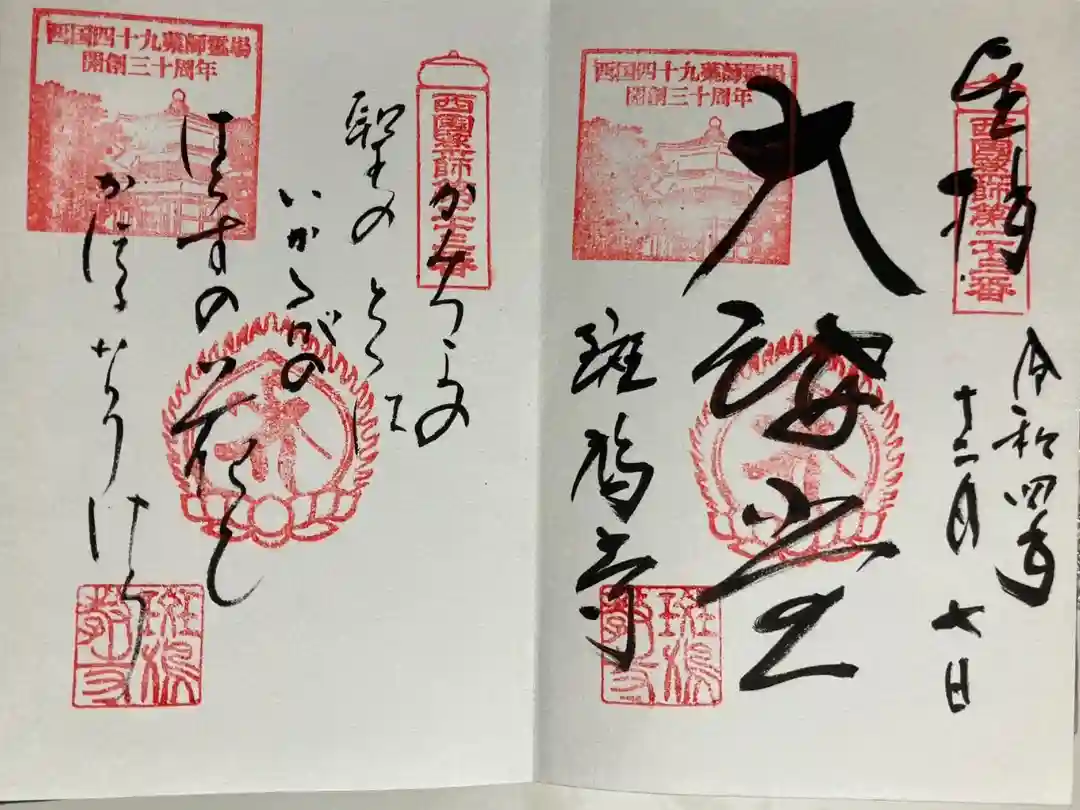 奉拝
西國薬師第二十三番
令和四年
十二月七日
西国四十九薬師霊場
開創三十周年
大講堂
斑鳩寺
斑鳩
教寺
西國薬師第二十三番
かみつよの
聖のとくは
いかるがの
はちすの花と
かほるなりけり
西国四十九薬師霊場
開創三十周年
斑鳩
教寺